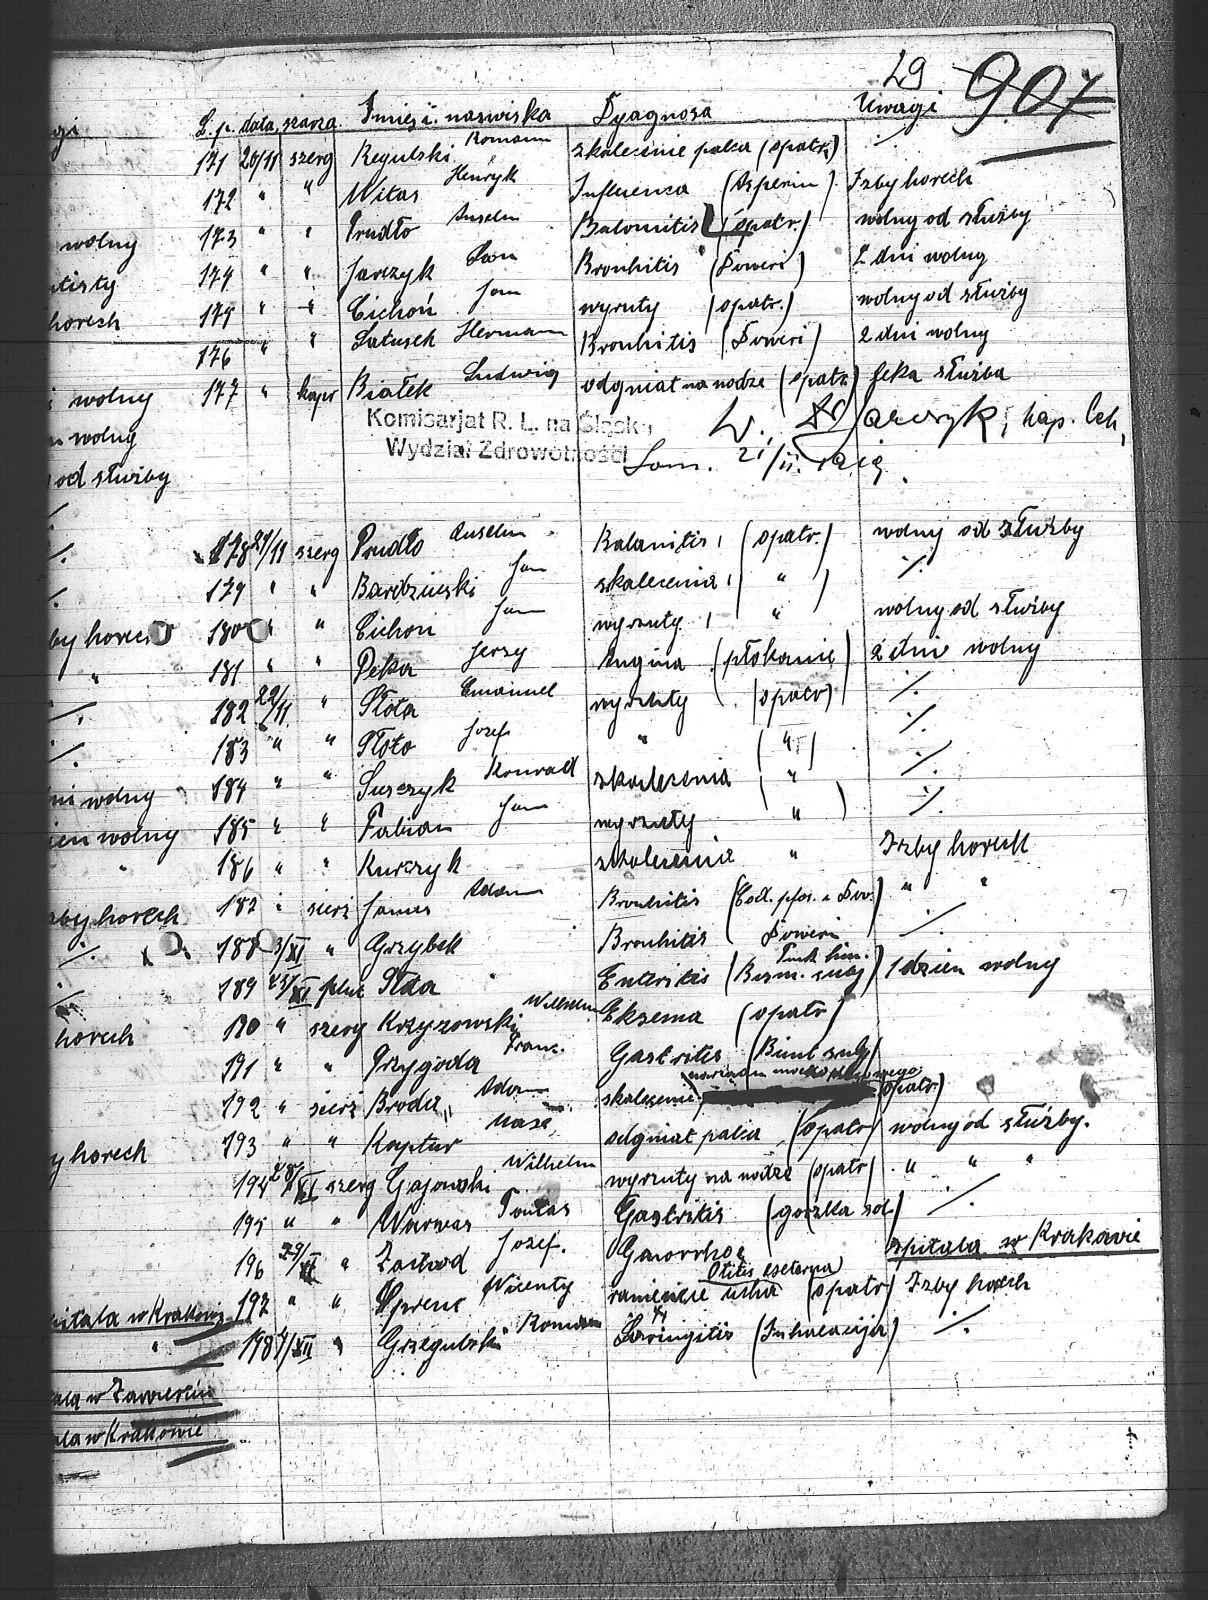 29 907
L. p. data szarża Imię i nazwiska Dyagnoza Uwagi
171 20/11 szerg Regulski Romann skalecenie palca (opatr.) ./.
172 " " Witas Henryk Influenca (Asperin) Izby horech
173 " " Prudło Anselm Balomitis (opatr.) wolny od służby
174 " " Jarczyk Jan Bronhitis (Doweri) 2 dni wolny
175 " " Cichoń Jan wyruty (opatr.) wolny od służby
176 " " Latusek Hermann Bronhitis (Doweri) 2 dni wolny
177 " kapr Białek Ludwig odgniat na nodze (opatr.) leka służba
Komisarjat R. L. na Śląsk
Wydział Zdrowotności
21/11. 1919.
178 21/11 szerg Prudło Anselm Balanitis (opatr.) wolny od służby
179 " " Bardziński Jan skalecenia ( " ) ./.
180 " " Cichon Jan wyrzuty " wolny od służby
181 " " Peka Jerzy Angina (płokanie) 2 dni wolny
182 22/11 " Płota Emanuel wyrzuty (opatr) ./.
183 " " Płoto Jozef " ( " ) ./.
184 " " Suszyk Konrad skalecenia ( " ./.
185 " " Fabian Jan wyrzuty " ) ./.
186 " " Kurczyk skalecenia " Izby horech
187 " sierż James Adam Bronhitis (Cod. pfos. i Dov.) " "
188 3/XI " Grzybek Bronhitis Doweri ./.
189 23/XI plut Płda Enteritis (Bism. subg) 1 dzien wolny
190 " szerg Krzyzowski Wilhelm Eksema (opatr)
191 " " Przygoda Franc. Gastritis (Bimt subg)
192 " sierż Broda Adam skalecenie opatr.)
193 " " Kaptur odgniat palca (opatr) wolny od służby.
194 28/XI szerg Gajowski Wilhelm wyrzuty na nodze (opatr) " " "
195 " " Warwas Tomas Gastritis (gorzka sol.) ./.
196 29/XI " Zastood Jozef. Gonorrhoe szpitala w Krakowie
197 " " Wizenty ranienie ucha Otitis esterna (opatr) Izby horech
198 1/XII " Grzegulski Roman Laringitis (Inhalacija) ./.
wolny
horech
wolny
wolny
od służby
by horech
ni wolny
ien wolny
zby horech
horech
y horech
pitala w Krakowie
w Krakowie